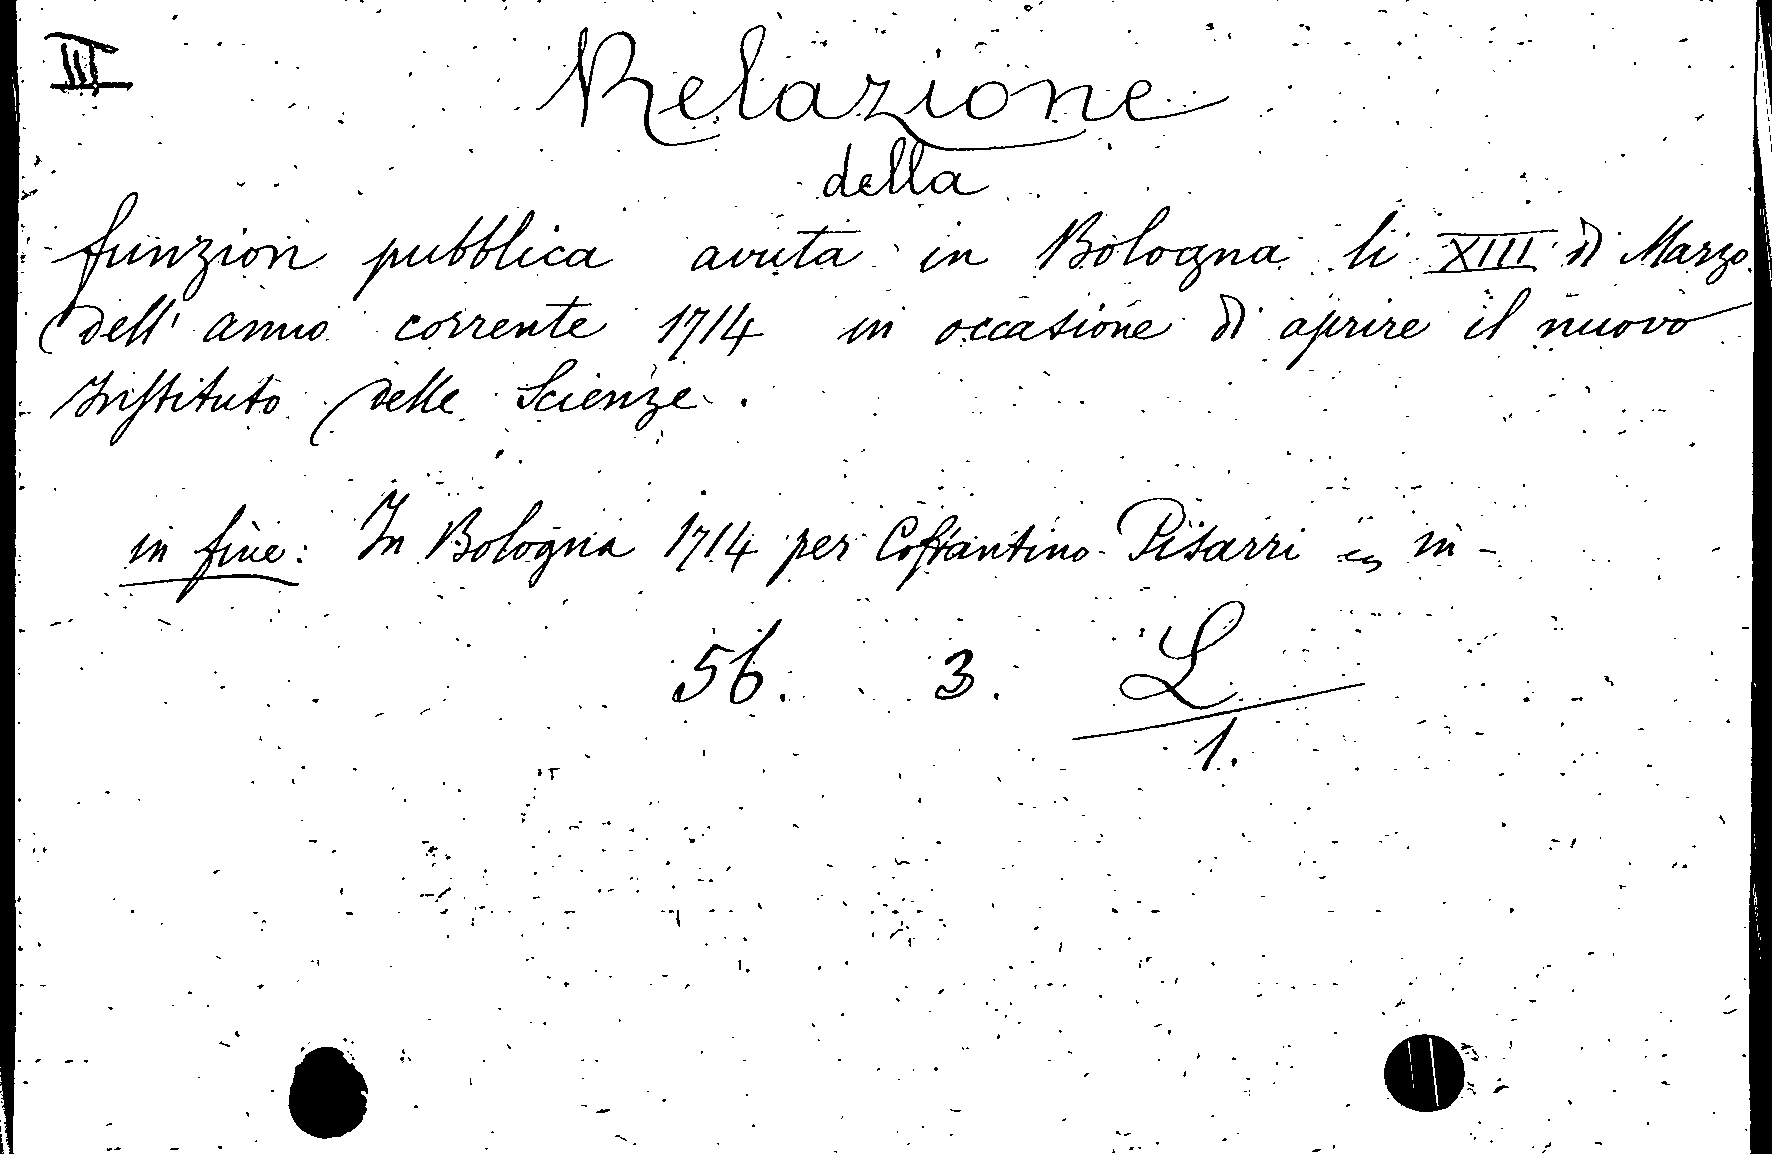 III
Relazione
della
funzion pubblica avuta in Bologna li XIII di Marzo
dell' anno corrente 1714 in occasione di aprire il nuovo
Instituto delle Scienze.
in fine: In Bologna 1714 per Costantino Pisarri in -
56. 3. L
1.